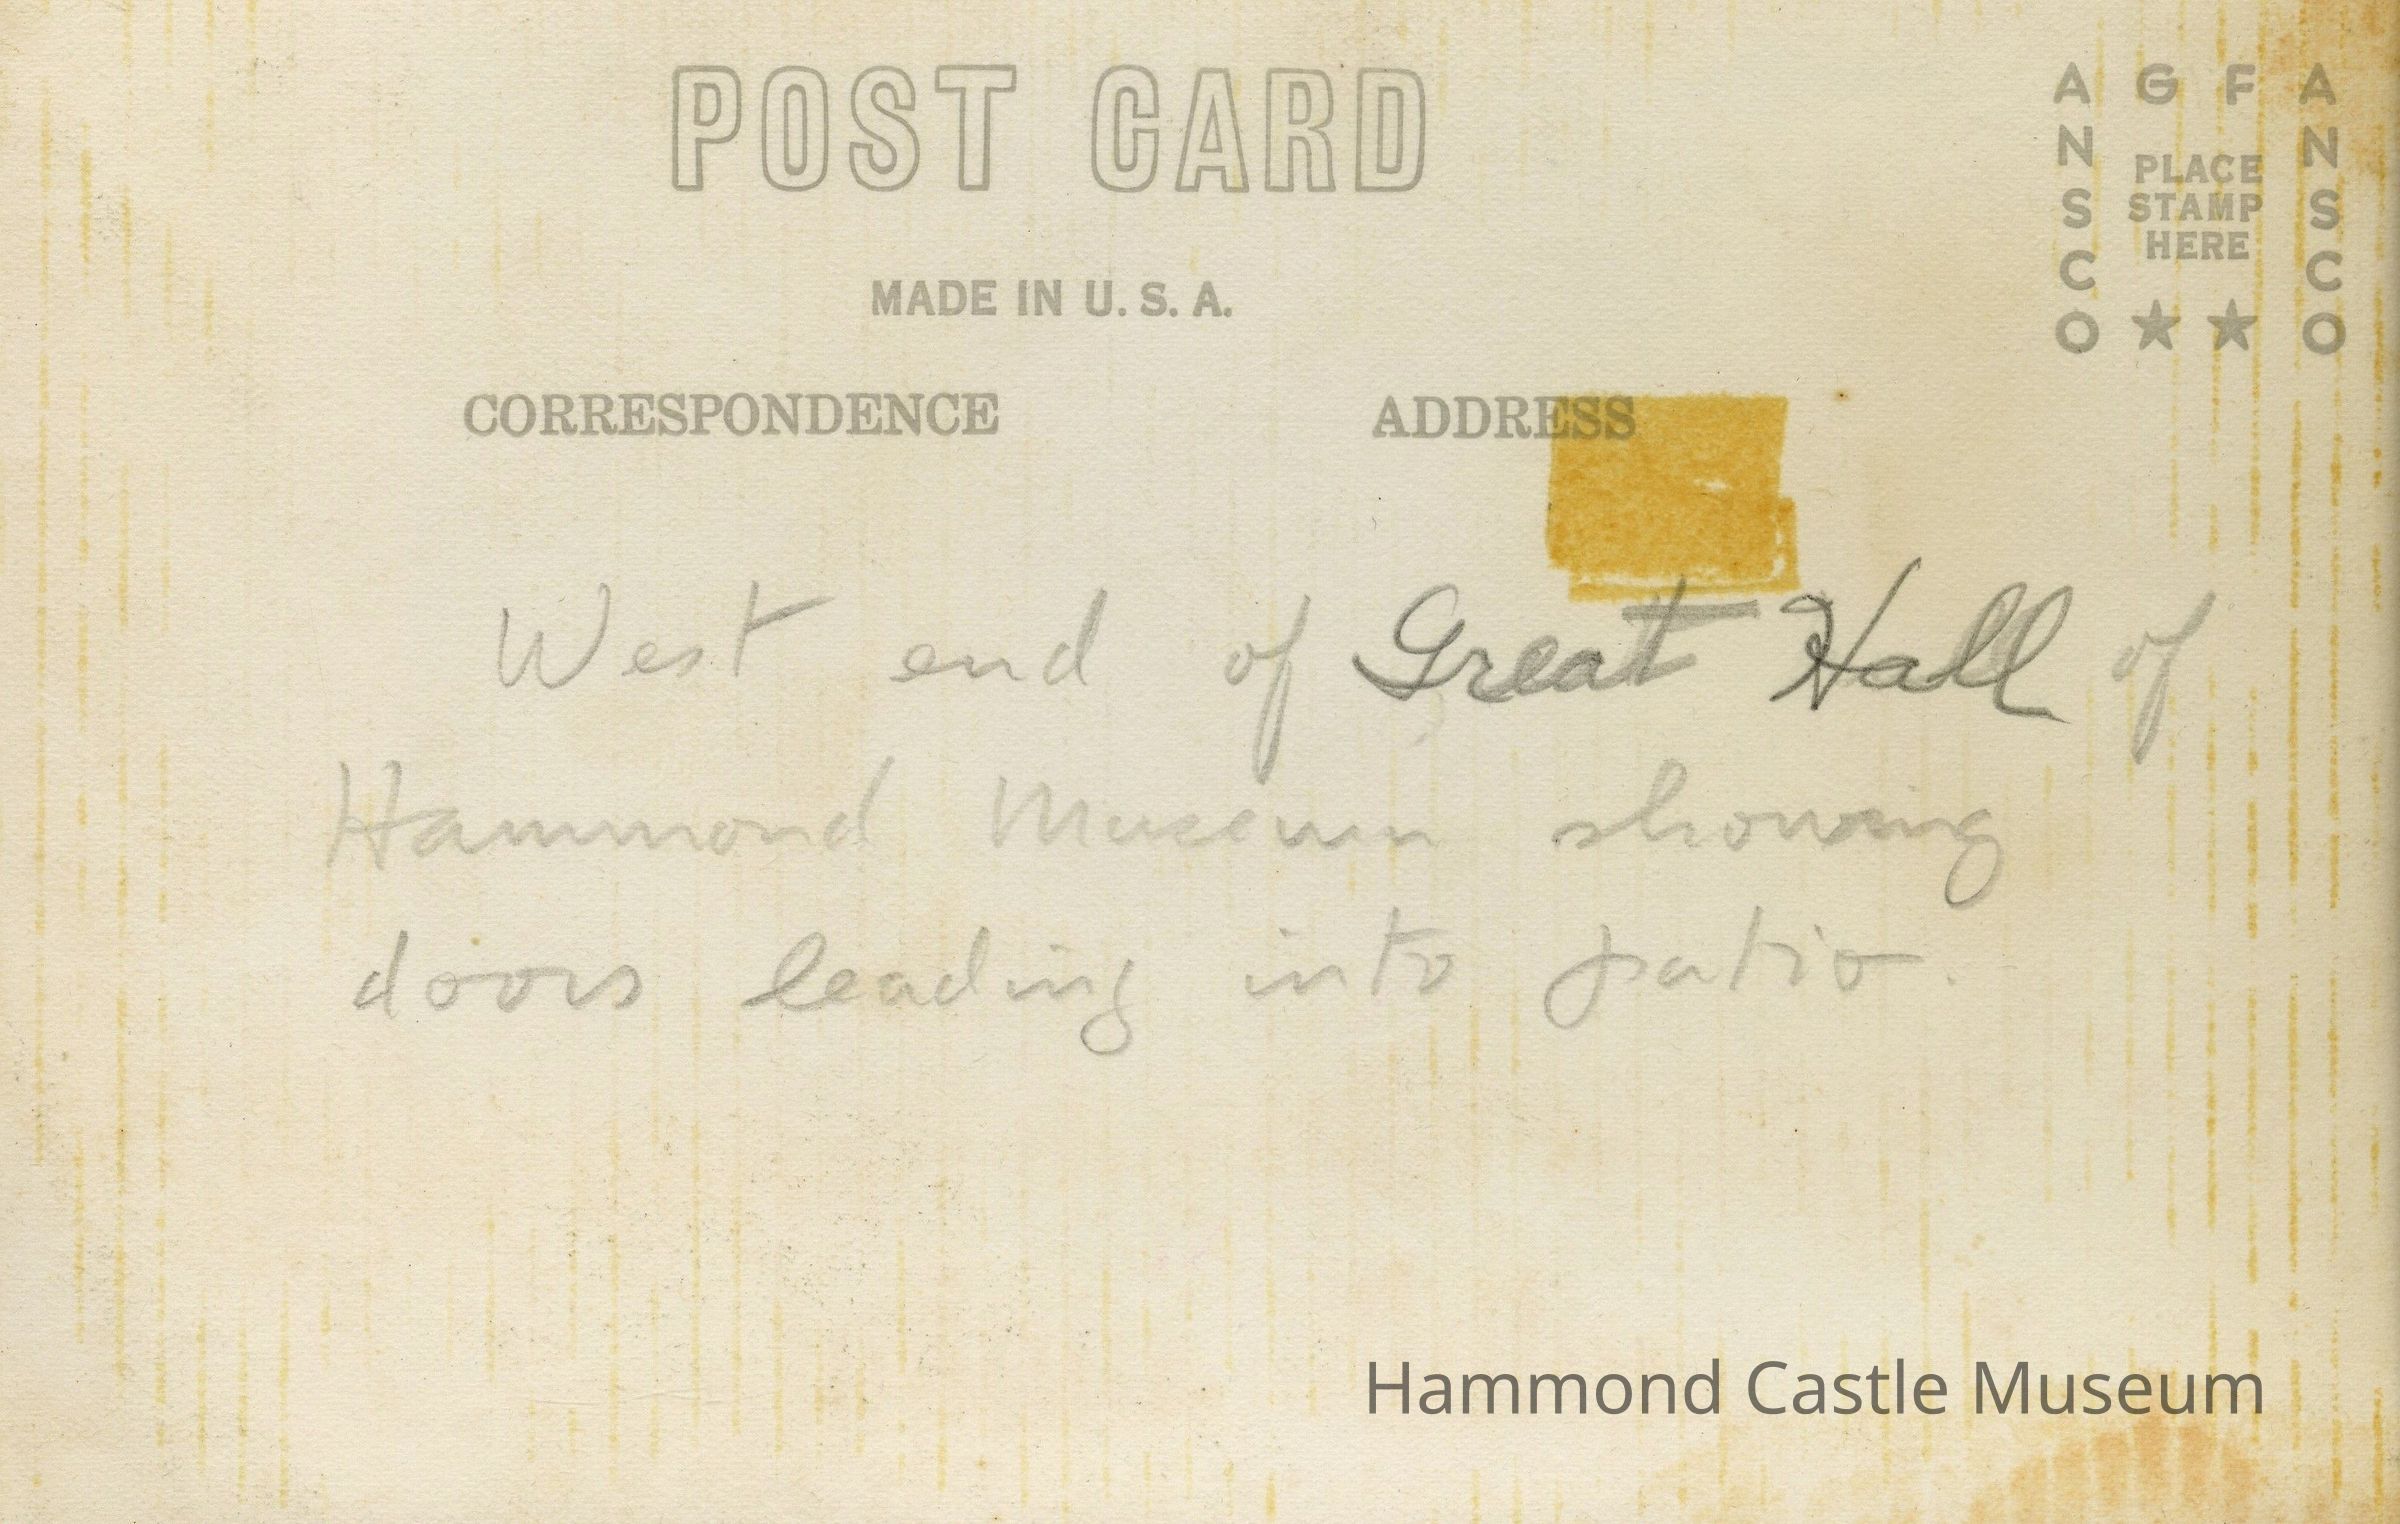 POST CARD
MADE IN U.S.A.
CORRESPONDENCE
ADDRESS
AGFA
ANSCO
ANSCO
PLACE
STAMP
HERE
West end of Great Hall of
Hammond Museum showing
doors leading into patio.
Hammond Castle Museum